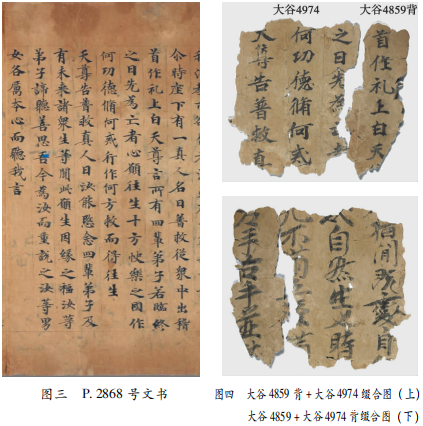 今時座下有一真人名曰普救從衆中出稽
首作礼上白天尊言所有四輩弟子若臨終
之日先為亡者心願往生十方快樂之國作
何功德脩何戒行作何方救而得往生
天尊告普救真人曰汝能愍念四輩弟子及
有未来諸衆生等聞此願生因緣之福汝等
弟子諦聽善思吾今為汝而重説之汝等男
女各属本心而聽我言
图三 P. 2868 号文书
大谷4974 大谷4859背
首作礼上白天
之日先為亡
何功德脩何戒
天尊告普救真
自然生 時
图四 大谷 4859 背+大谷 4974 缀合图（上）
大谷 4859+大谷 4974 背缀合图（下）